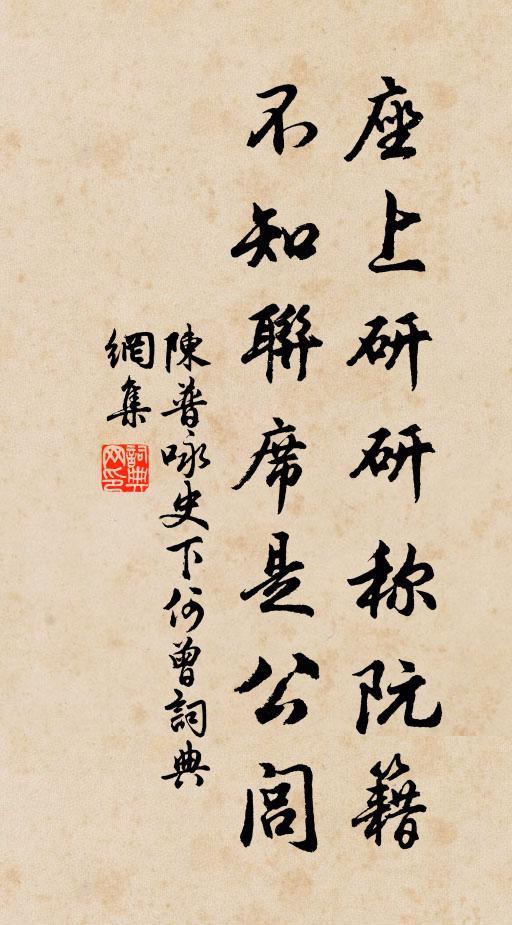 座上研研称阮籍
不知聯席是公閭
陳普咏史下何曾詞典
網集
詞典網印